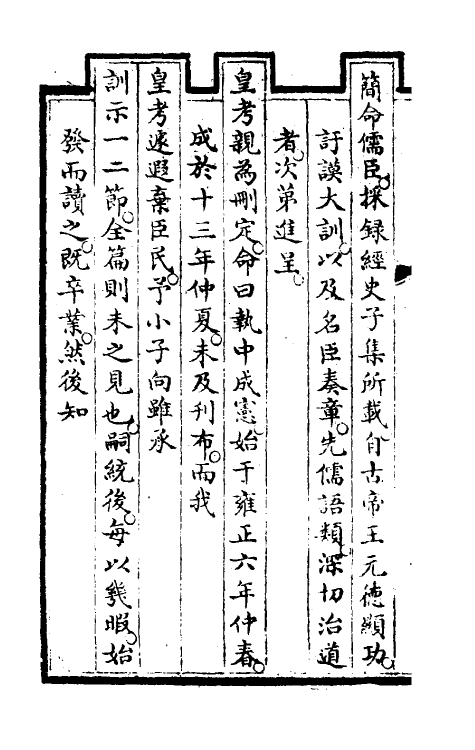 簡命儒臣採録經史子集所載自古帝王元徳顯功
訏謨大訓以及名臣奏章先儒語類深切治道
者次第進呈
皇考親為刪定命曰執中成憲始于雍正六年仲春
成於十三年仲夏未及刊布而我
皇考遽遐棄臣民予小子向雖承
訓示一二節全篇則未之見也嗣統後每以幾暇始
發而讀之既卒業然後知